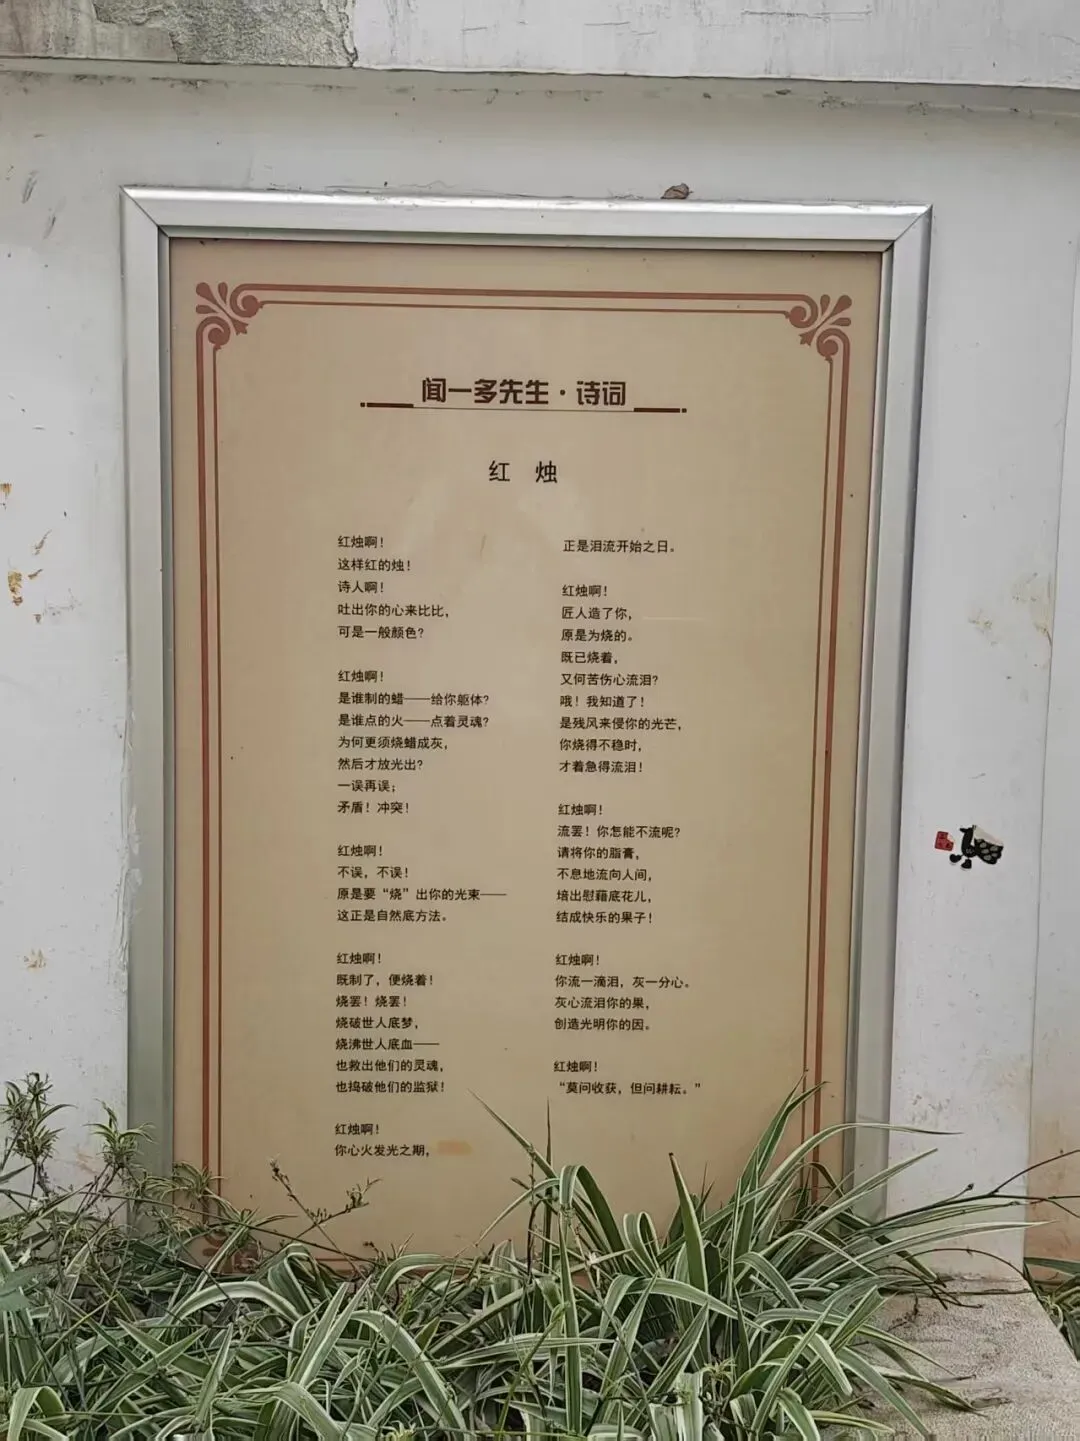 闻一多先生·诗词
红 烛
红烛啊！
这样红的烛！
诗人啊！
吐出你的心来比比，
可是一般颜色？
红烛啊！
是谁制的蜡——给你躯体？
是谁点的火——点着灵魂？
为何更须烧蜡成灰，
然后才放光出？
一误再误；
矛盾！冲突！
红烛啊！
不误，不误！
原是要“烧”出你的光束——
这正是自然底方法。
红烛啊！
既制了，便烧着！
烧罢！烧罢！
烧破世人底梦，
烧沸世人底血——
也救出他们的灵魂，
也捣破他们的监狱！
红烛啊！
你心火发光之期，
正是泪流开始之日。
红烛啊！
匠人造了你，
原是为烧的。
既已烧着，
又何苦伤心流泪？
哦！我知道了！
是残风来侵你的光芒，
你烧得不稳时，
才着急得流泪！
红烛啊！
流罢！你怎能不流呢？
请将你的脂膏，
不息地流向人间，
培出慰藉底花儿，
结成快乐的果子！
红烛啊！
你流一滴泪，灰一分心。
灰心流泪你的果，
创造光明你的因。
红烛啊！
“莫问收获，但问耕耘。”